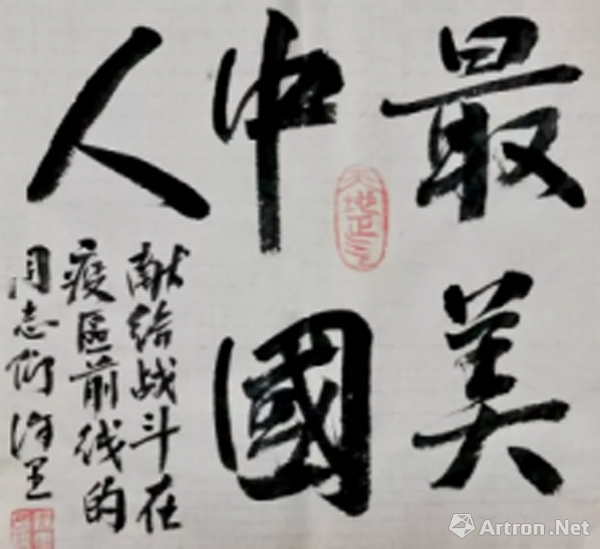 最美
中國
人
天地正气
献给战斗在
疫區前线的
同志们
Artron.Net